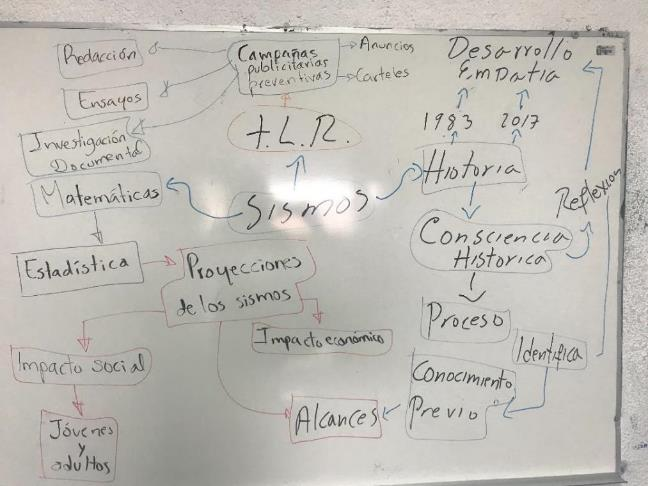 Redacción
Campañas
publicitarias
preventivas
Anuncios
Carteles
Desarrollo
EmPatia
Ensayos
Investigación
Documental
t.L.R.
1983 2017
Historia
Matemáticas
Sismos
Reflexion
Consciencia
Historica
Estadística
Proyecciones
de los sismos
Proceso
Impacto económico
Identifica
Impacto social
Conocimiento
Previo
Alcances
Jóvenes
y
adultos